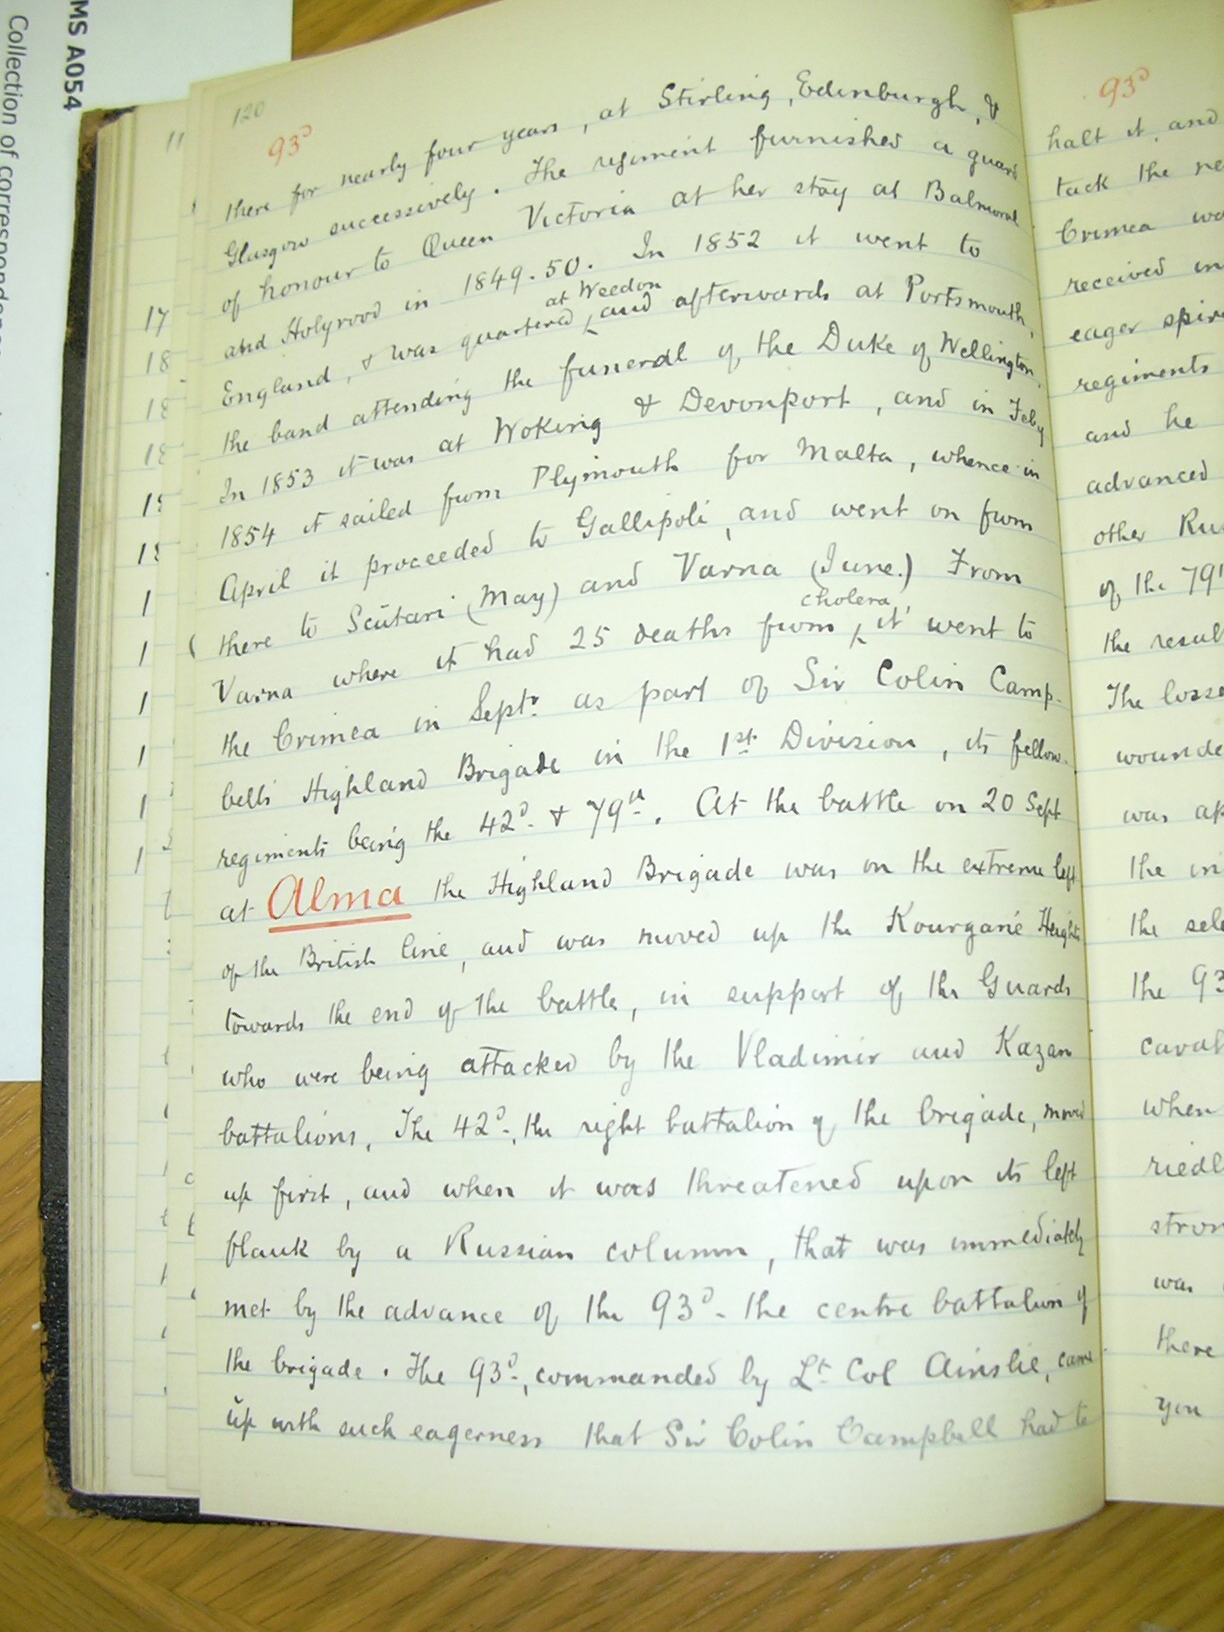 MS A054
Collection of correspondence
120
93ᴰ
there for nearly four years, at Stirling, Edinburgh, &
Glasgow successively. The regiment furnished a guard
of honour to Queen Victoria at her stay at Balmoral
and Holyrood in 1849-50. In 1852 it went to
England, & was quartered ^at Weedon and afterwards at Portsmouth,
the band attending the funeral of the Duke of Wellington.
In 1853 it was at Woking & Devonport, and in Feby
1854 it sailed from Plymouth for Malta, whence in
April it proceeded to Gallipoli, and went on from
there to Scutari (May) and Varna (June.) From
Varna where it had 25 deaths from ^cholera, it went to
the Crimea in Septr. as part of Sir Colin Camp-
bell's Highland Brigade in the 1st. Division, its fellow-
regiments being the 42d. & 79th. At the battle on 20 Sept
at Alma the Highland Brigade was on the extreme left
of the British line, and was moved up the Kourgané Heights
towards the end of the battle, in support of the Guards
who were being attacked by the Vladimir and Kazan
battalions. The 42d., the right battalion of the brigade, moved
up first, and when it was threatened upon its left
flank by a Russian column, that was immediately
met by the advance of the 93d - the centre battalion of
the brigade. The 93d., commanded by Lt. Col Ainslie, came
up with such eagerness that Sir Colin Campbell had to
93ᴰ
halt it, and
tack the
Crimea
received
eager
regiments
and he
advanced
other
of the 79
the
The
wounde
was
the
the
the 93
caval
when
riedl
stron
was
there
you